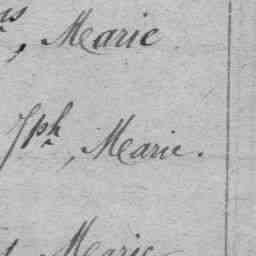 , Marie
Jph, Marie.
Marie